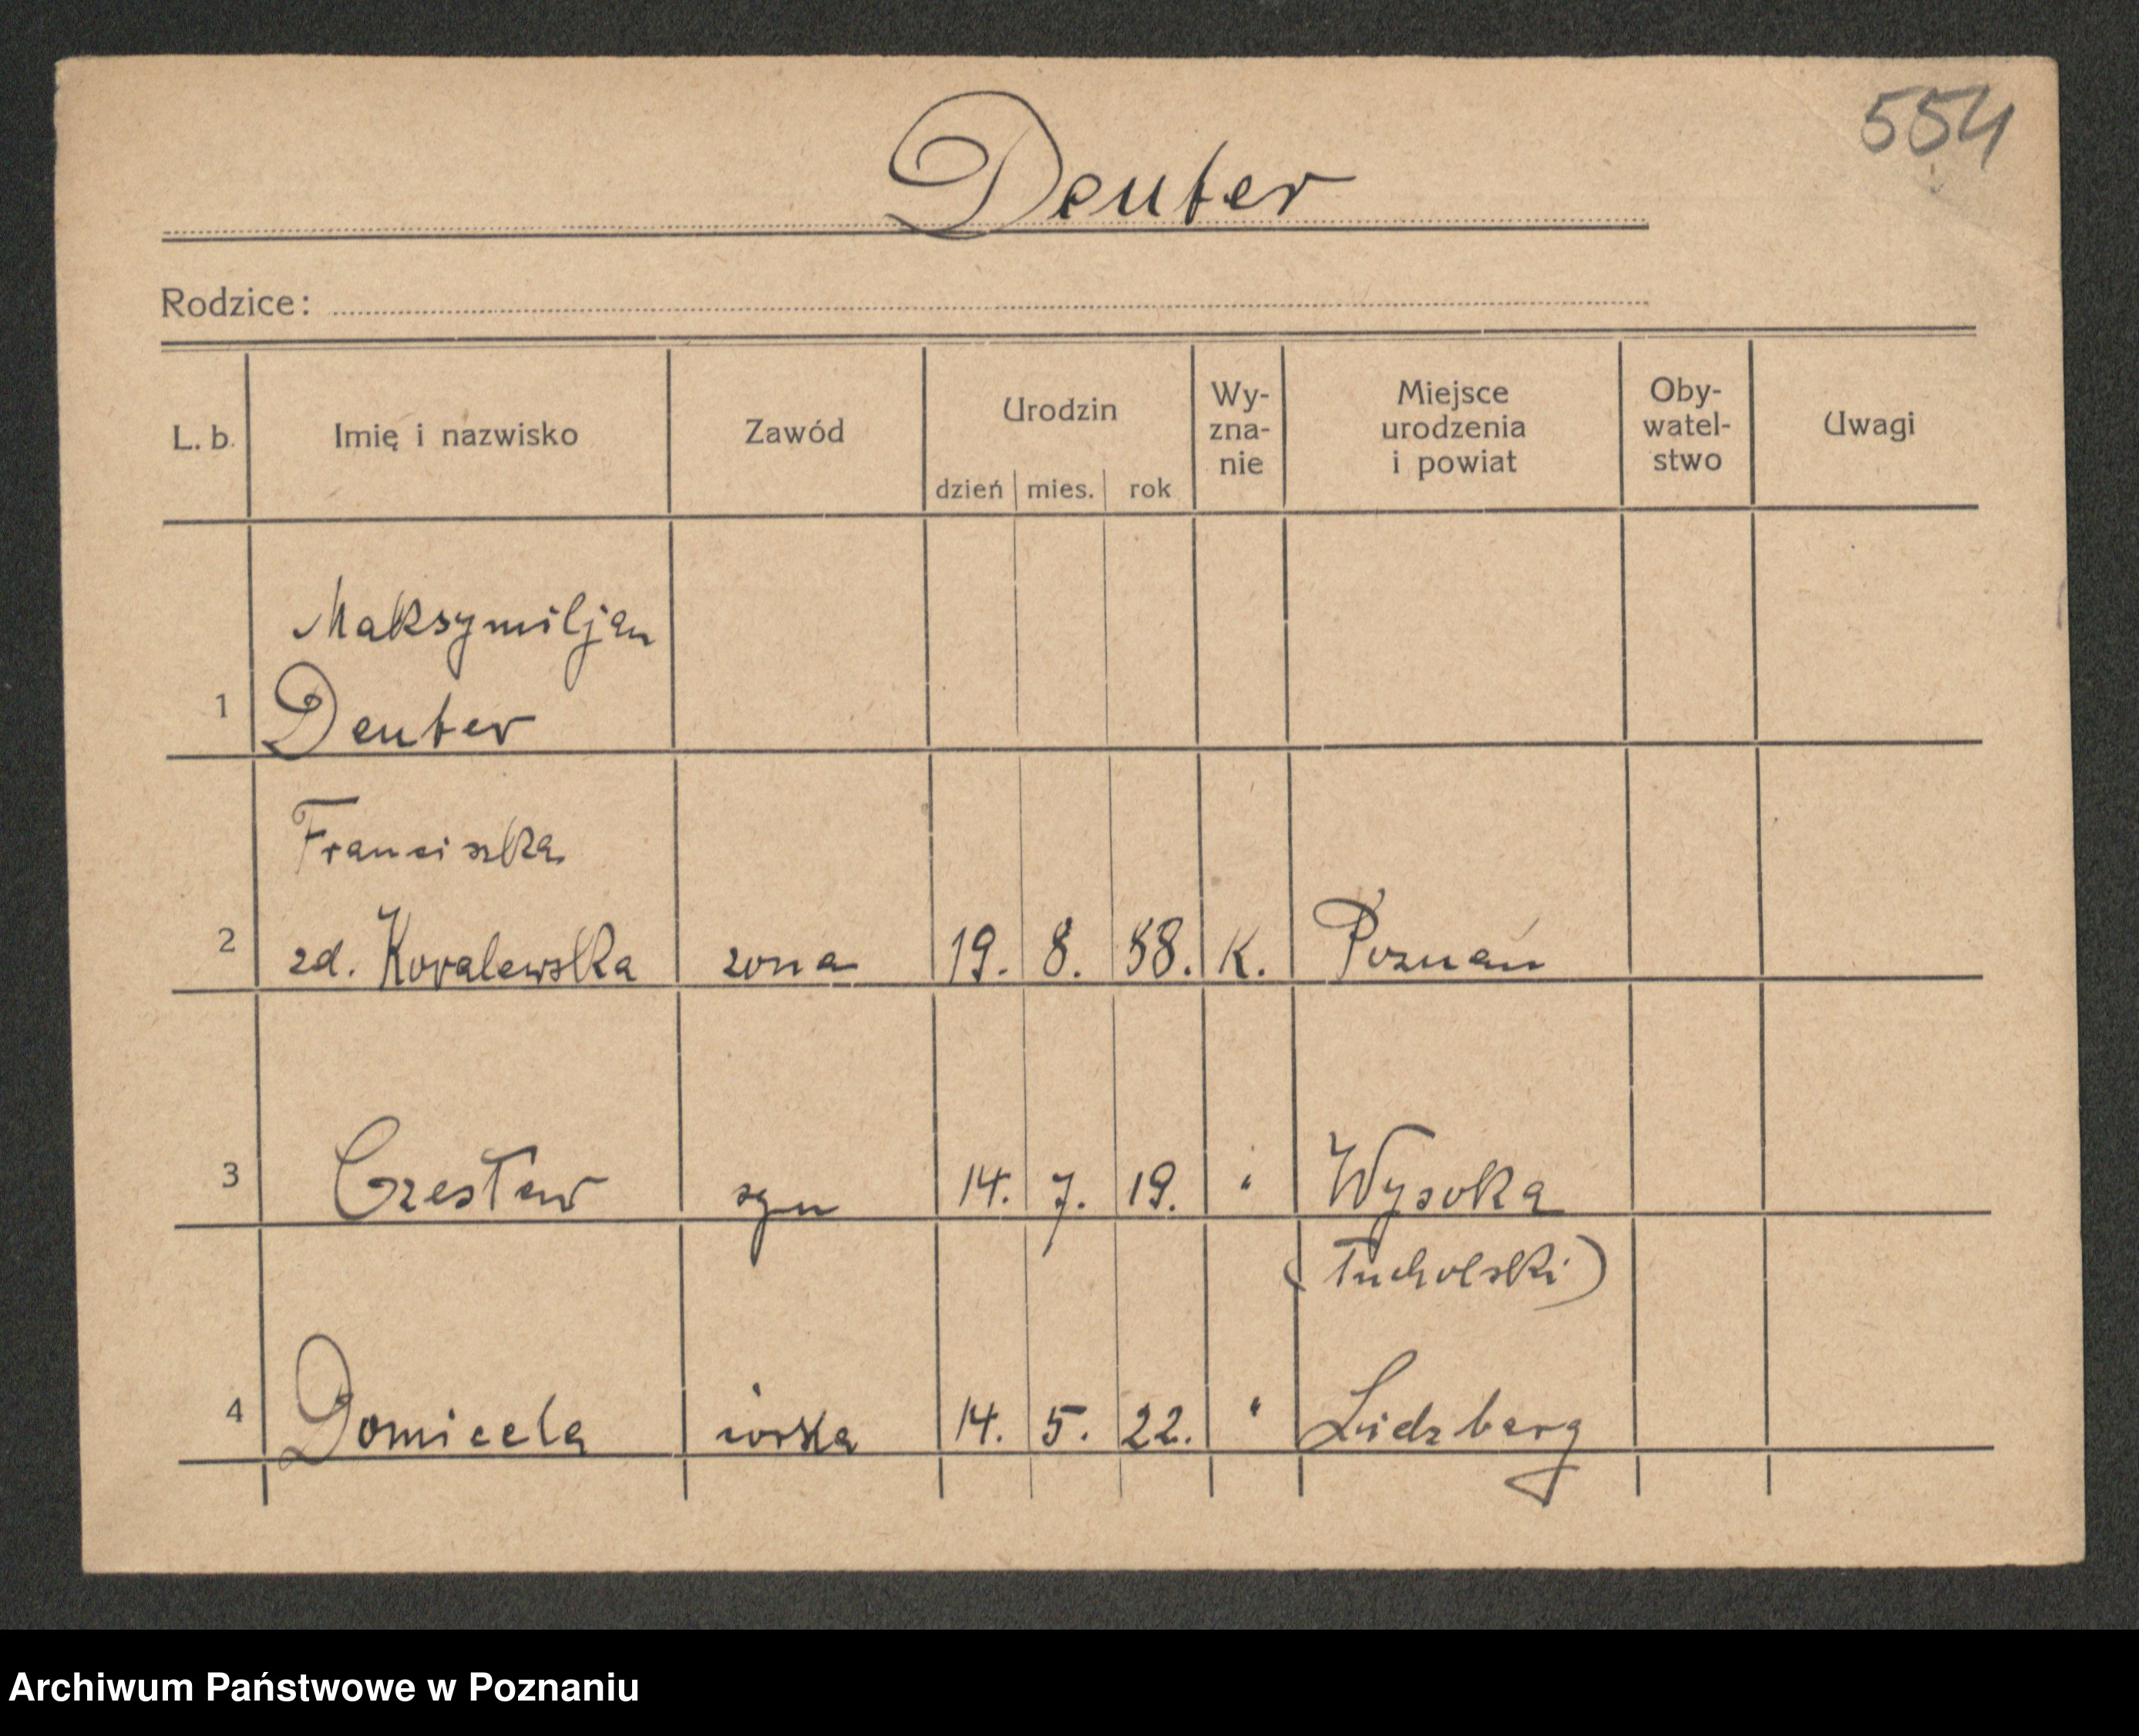 554
Deuter
Rodzice:
L. b. Imię i nazwisko Zawód Urodzin dzień mies. rok Wy-zna-nie Miejsce urodzenia i powiat Oby-watel-stwo Uwagi
Maksymiljan
1 Deuter
Franciszka
2 zd. Kowalewska zona 19. 8. 88. K. Poznań
3 Czesław syn 14. 7. 19. " Wysoka
(Tucholski)
4 Domicela córka 14. 5. 22. " Lidzbarg
Archiwum Państwowe w Poznaniu